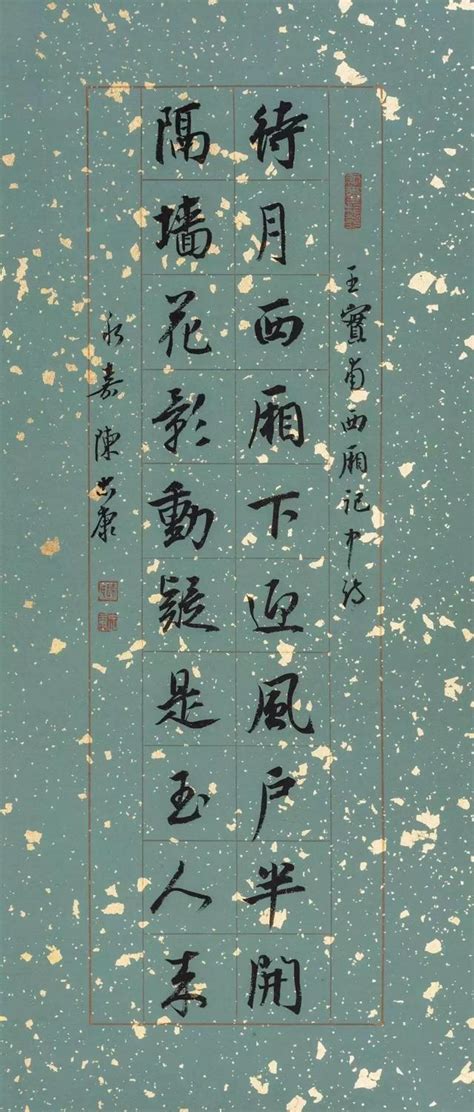 王實甫西厢記中诗
待月西厢下迎風户半開
隔墙花影動疑是玉人来
永嘉陳忠康